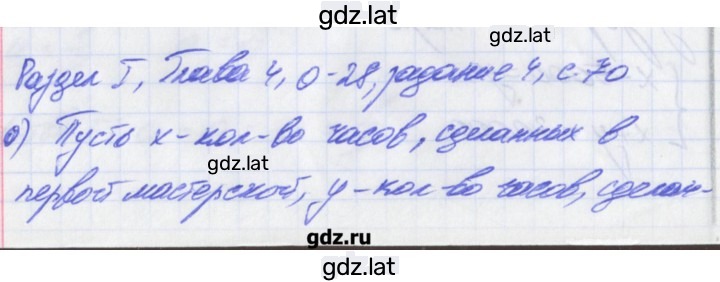 gdz.lat
Раздел I, Глава 4, О-28, задание 4, с.70
gdz.lat
о) Пусть х - кол-во часов, сделанных в
gdz.lat
первой мастерской, у - кол-во часов, сделан-
gdz.ru
gdz.lat